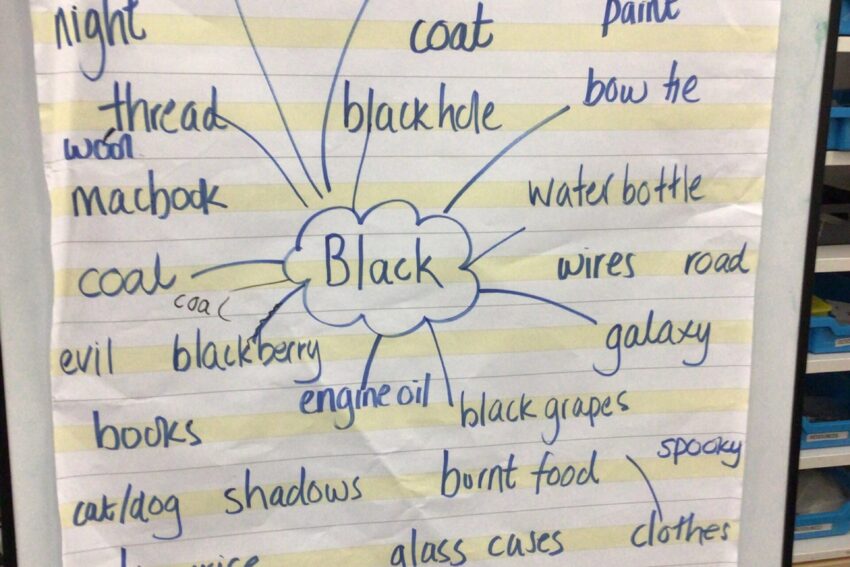 night
coat
paint
thread
black hole
bow tie
wool
macbook
water bottle
Black
coal
wires
road
coal
evil
blackberry
galaxy
engine oil
black grapes
books
spooky
cat/dog
shadows
burnt food
clothes
glass cases